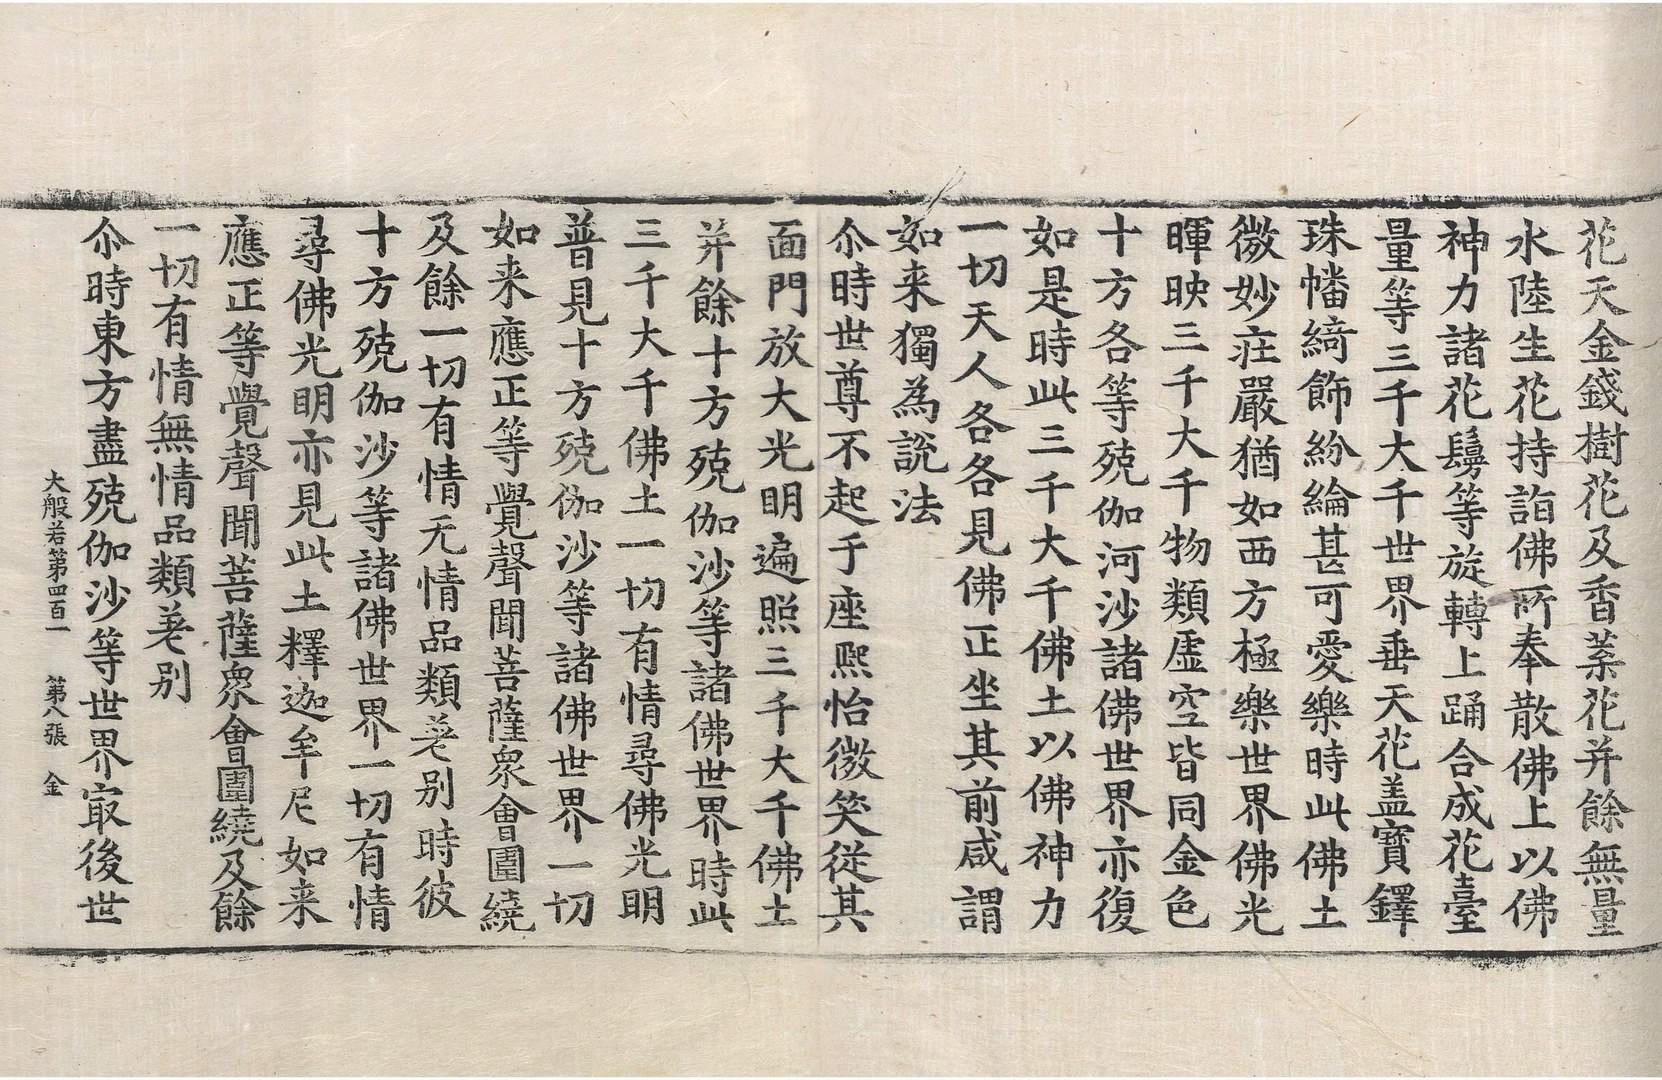 花天金錢樹花及香葉花并餘無量
水陸生花持詣佛所奉散佛上以佛
神力諸花鬘等旋轉上踊合成花臺
量等三千大千世界垂天花盖寶鐸
珠幡綺飾紛綸甚可愛樂時此佛土
微妙庄嚴猶如西方極樂世界佛光
暉映三千大千物類虛空皆同金色
十方各等殑伽河沙諸佛世界亦復
如是時此三千大千佛土以佛神力
一切天人各各見佛正坐其前咸謂
如来獨為說法
尒時世尊不起于座熈怡微笑從其
面門放大光明遍照三千大千佛土
并餘十方殑伽沙等諸佛世界時此
三千大千佛土一切有情尋佛光明
普見十方殑伽沙等諸佛世界一切
如来應正等覺聲聞菩薩衆會圍繞
及餘一切有情无情品類差別時彼
十方殑伽沙等諸佛世界一切有情
尋佛光明亦見此土釋迦牟尼如来
應正等覺聲聞菩薩衆會圍繞及餘
一切有情無情品類差別
大般若第四百一　第八張　金
尒時東方盡殑伽沙等世界㝡後世